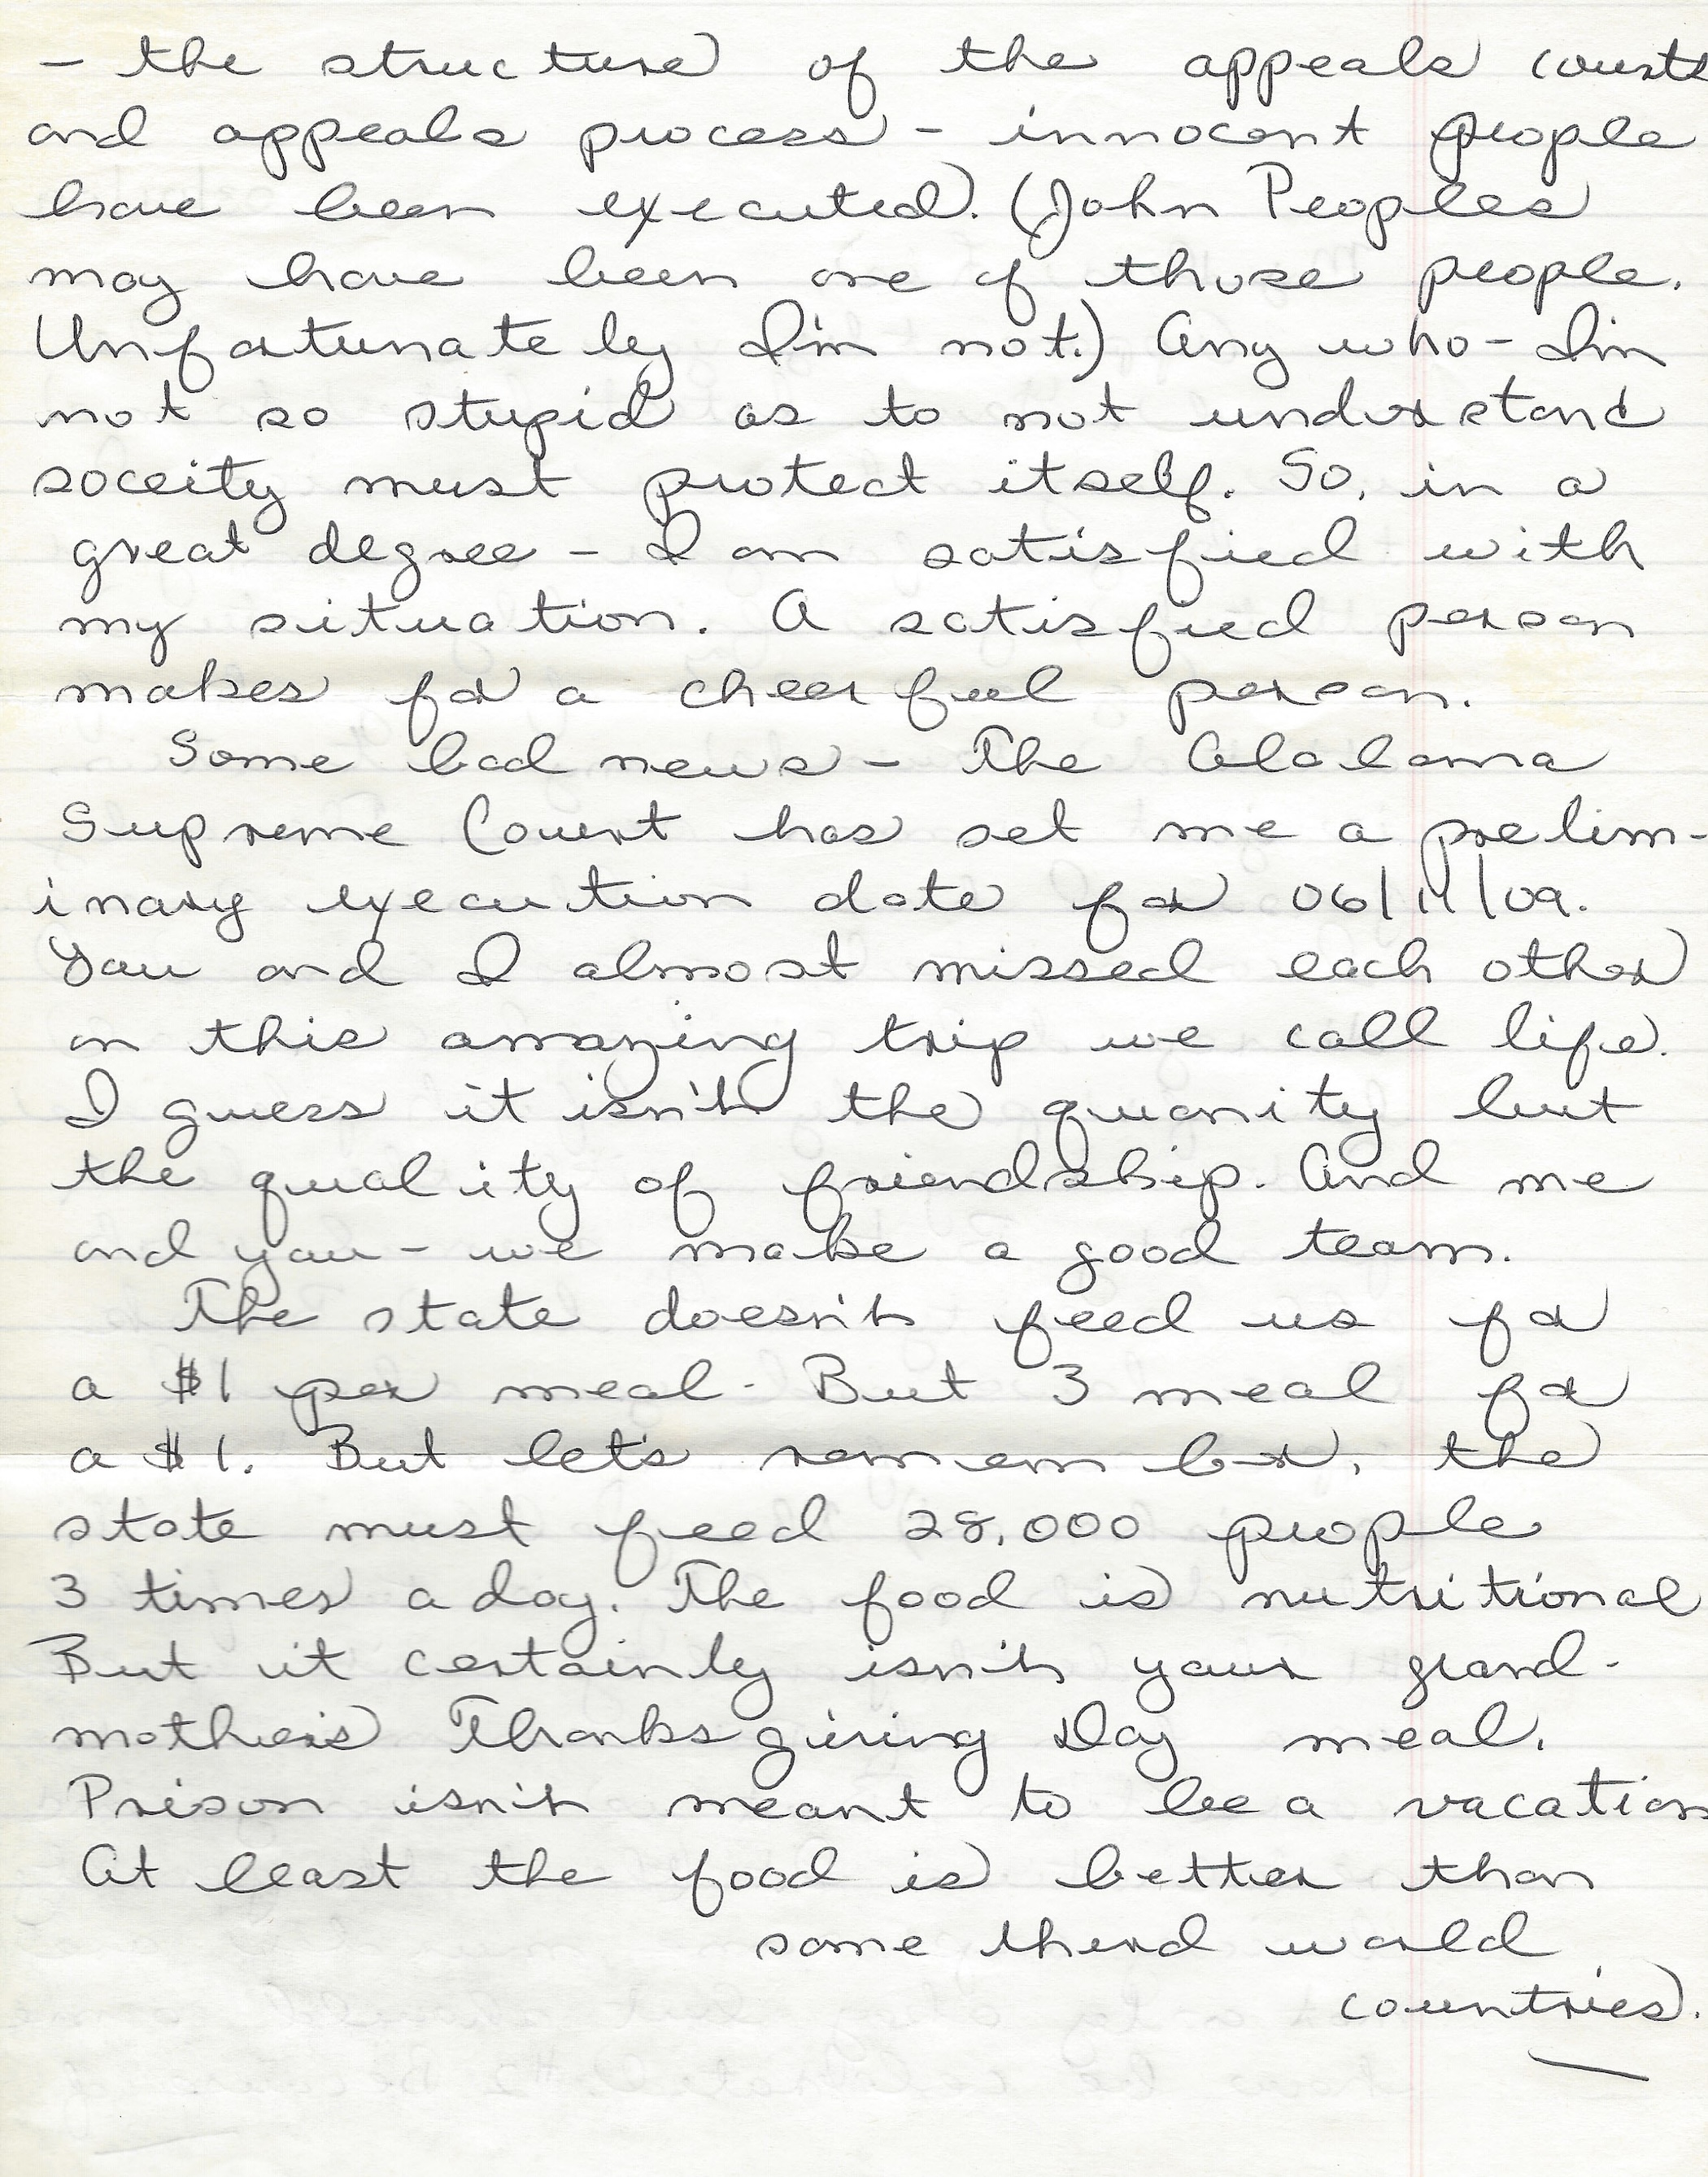 - the structure of the appeals courts
and appeals process - innocent people
have been executed. (John Peoples
may have been one of those people.
Unfortunately I'm not.) Any who - I'm
not so stupid as to not understand
soceity must protect itself. So, in a
great degree - I am satisfied with
my situation. A satisfied person
makes for a cheerful person.
Some bad news - The Alabama
Supreme Court has set me a prelim-
inary execution date for 06/11/09.
You and I almost missed each other
on this amazing trip we call life.
I guess it isn't the quanity but
the quality of friendship. And me
and you - we make a good team.
The state doesn't feed us for
a $1 per meal. But 3 meal for
a $1. But let's remember, the
state must feed 28,000 people
3 times a day. The food is nutritional
But it certainly isn't your grand-
mother's Thanksgiving Day meal.
Prison isn't meant to be a vacation
At least the food is better than
some therd world
countries.